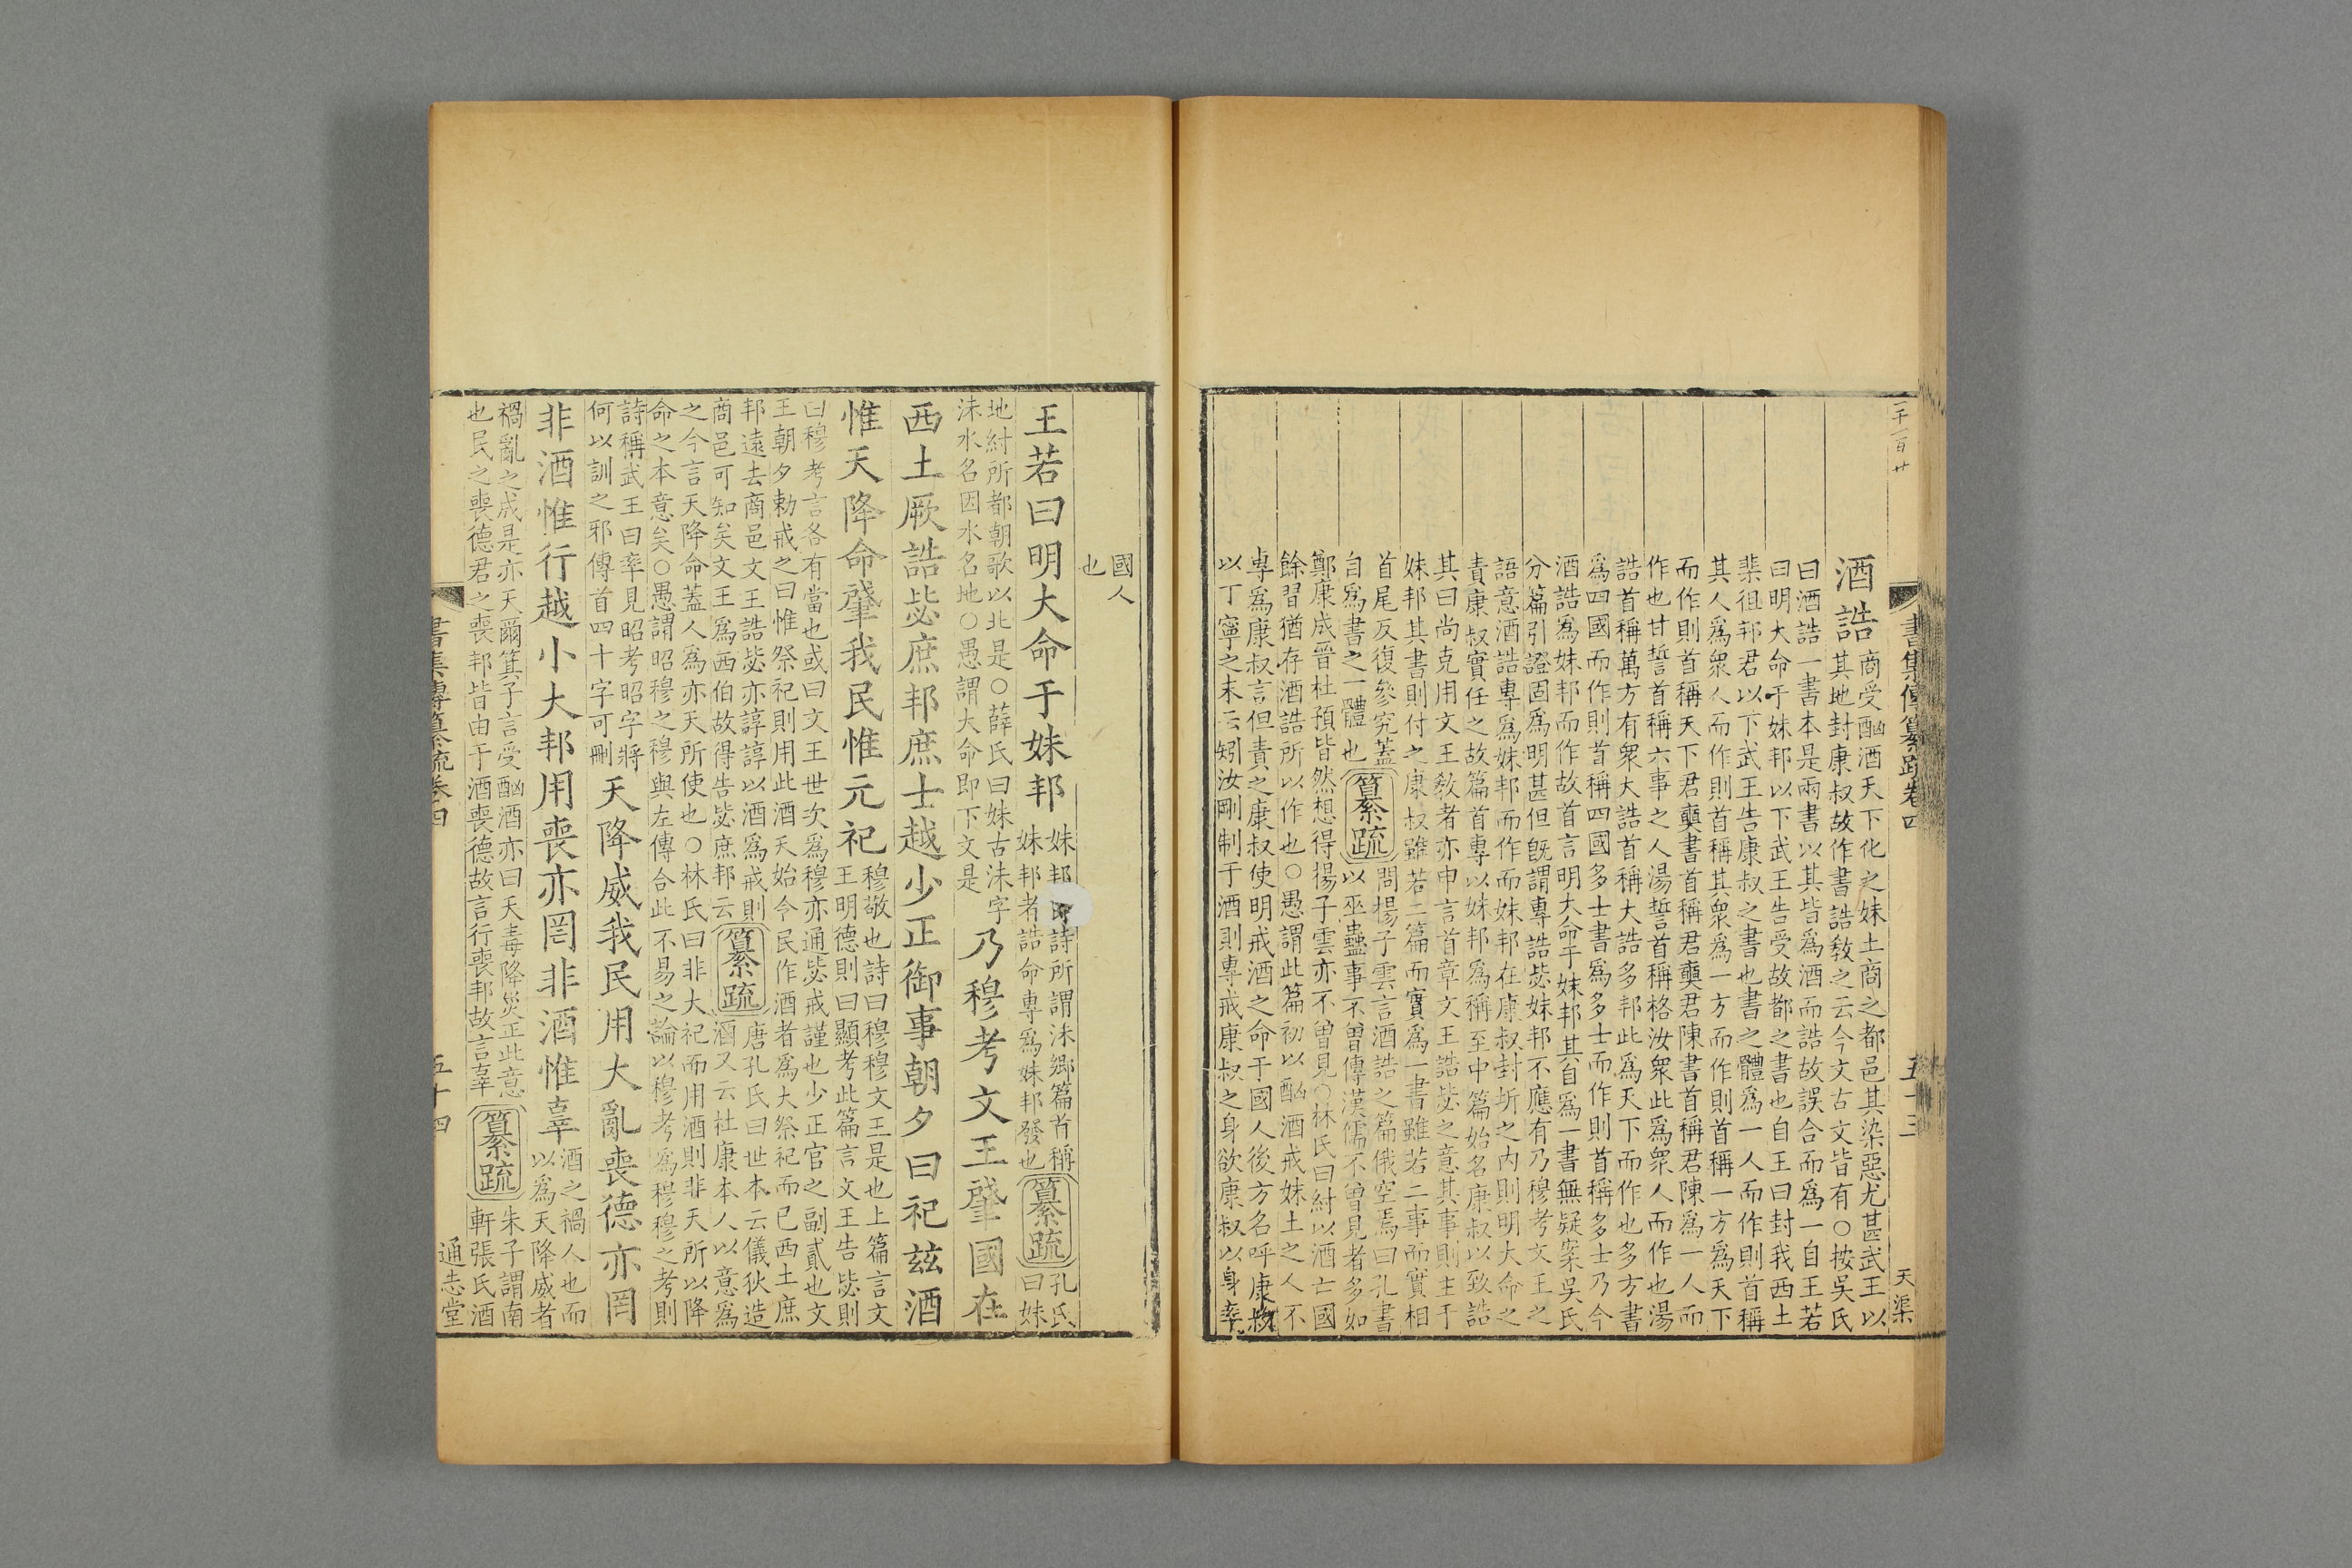 一千一百廿
書集傳纂疏卷四
五十三
天渠
酒誥
商受酗酒天下化之妹土商之都邑其染惡尤甚武王以
其地封康叔故作書誥敎之云今文古文皆有○按吳氏
曰酒誥一書本是兩書以其皆爲酒而誥故誤合而爲一自王若
曰明大命于妹邦以下武王告受故都之書也自王曰封我西土
棐徂邦君以下武王告康叔之書也書之體爲一人而作則首稱
其人爲衆人而作則首稱其衆爲一方而作則首稱一方爲天下
而作則首稱天下君奭書首稱君奭君陳書首稱君陳爲一人而
作也甘誓首稱六事之人湯誓首稱格汝衆此爲衆人而作也湯
誥首稱萬方有衆大誥首稱大誥多邦此爲天下而作也多方書
爲四國而作則首稱四國多士書爲多士而作則首稱多士乃今
酒誥爲妹邦而作故首言明大命于妹邦其自爲一書無疑案吳氏
分篇引證固爲明甚但旣謂專誥毖妹邦不應有乃穆考文王之
語意酒誥專爲妹邦而作而妹邦在康叔封圻之内則明大命之
責康叔實任之故篇首專以妹邦爲稱至中篇始名康叔以致誥
其曰尚克用文王敎者亦申言首章文王誥毖之意其事則主于
妹邦其書則付之康叔雖若二篇而實爲一書雖若二事而實相
首尾反復參究蓋
自爲書之一體也
纂疏
問揚子雲言酒誥之篇俄空焉曰孔書
以巫蠱事不曾傳漢儒不曾見者多如
鄭康成晉杜預皆然想得揚子雲亦不曾見○林氏曰紂以酒亡國
餘習猶存酒誥所以作也○愚謂此篇初以酗酒戒妹土之人不
專爲康叔言但責之康叔使明戒酒之命于國人後方名呼康叔
以丁寧之末云矧汝剛制于酒則專戒康叔之身欲康叔以身率
國人
也
王若曰明大命于妹邦
妹邦詩所謂沬鄉篇首稱
妹邦者誥命專爲妹邦發也
纂疏
孔氏
曰妹
地紂所都朝歌以北是○薛氏曰妹古沬字
沬水名因水名地○愚謂大命即下文是
乃穆考文王肇國在
西土厥誥毖庶邦庶士越少正御事朝夕曰祀茲酒
惟天降命肇我民惟元祀
穆敬也詩曰穆穆文王是也上篇言文
王明德則曰顯考此篇言文王告毖則
曰穆考言各有當也或曰文王世次爲穆亦通毖戒謹也少正官之副貳也文
王朝夕勅戒之曰惟祭祀則用此酒天始令民作酒者爲大祭祀而已西土庶
邦遠去商邑文王誥毖亦諄諄以酒爲戒則
商邑可知矣文王爲西伯故得告毖庶邦云
纂疏
唐孔氏曰世本云儀狄造
酒又云杜康本人以意爲
之今言天降命蓋人爲亦天所使也○林氏曰非大祀而用酒則非天所以降
命之本意矣○愚謂昭穆之穆與左傳合此不易之論以穆考爲穆穆之考則
詩稱武王曰率見昭考昭字將
何以訓之邪傳首四十字可刪
天降威我民用大亂喪德亦罔
非酒惟行越小大邦用喪亦罔非酒惟辜
酒之禍人也而
以爲天降威者
禍亂之成是亦天爾箕子言受酗酒亦曰天毒降災正此意
也民之喪德君之喪邦皆由于酒喪德故言行喪邦故言辜
纂疏
朱子謂南
軒張氏酒
書集傳纂疏卷四
五十四
通志堂